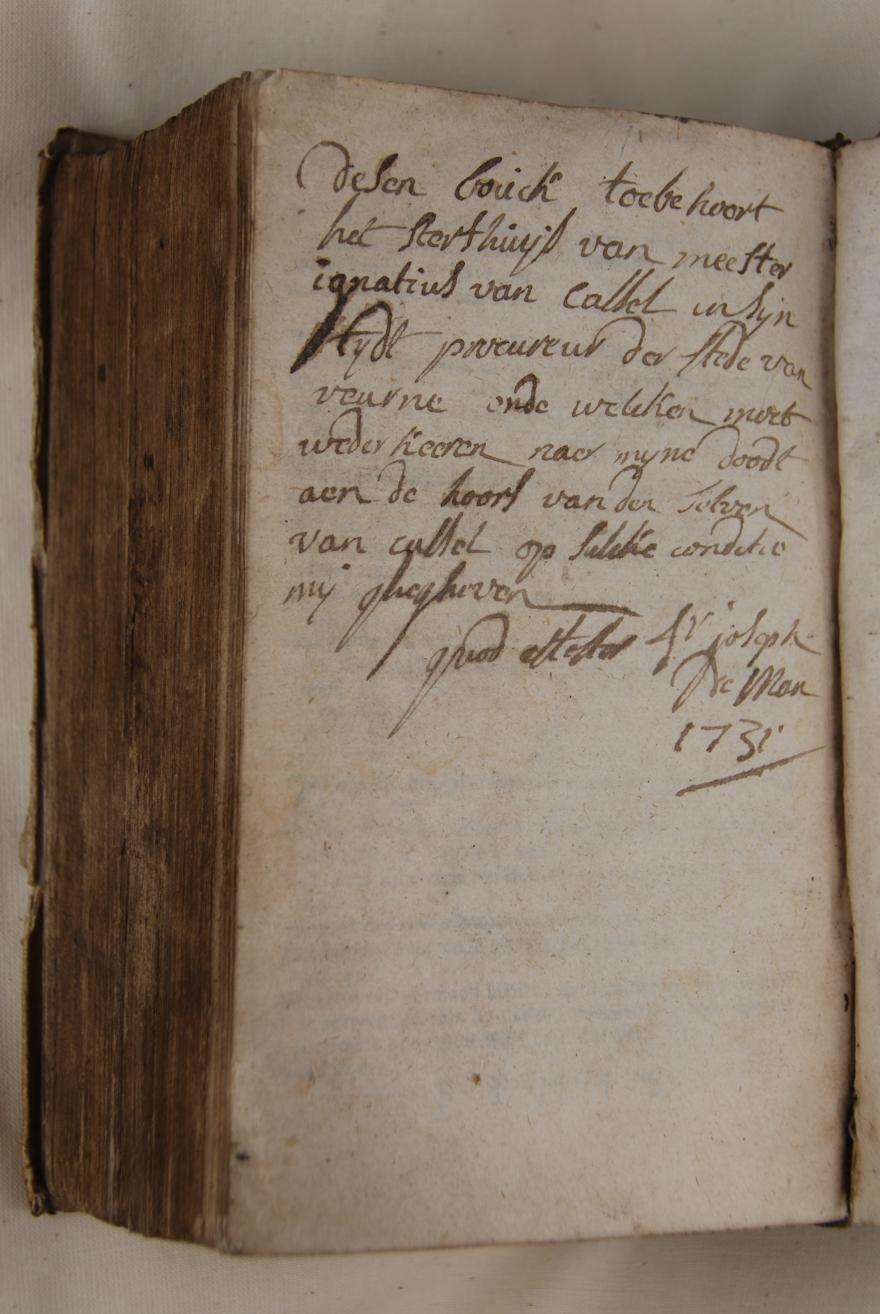 desen bouck toebehoort
het sterfhuijs van meester
ignatius van Cassel in sijn
tijdt procureur der stede van
veurne ende welcken moet
wederkeeren naer myne doodt
aen de hoors van den selven
van cassel op sulcke conditie
mij ghegheven
quod attestor fr joseph
De Man
1731